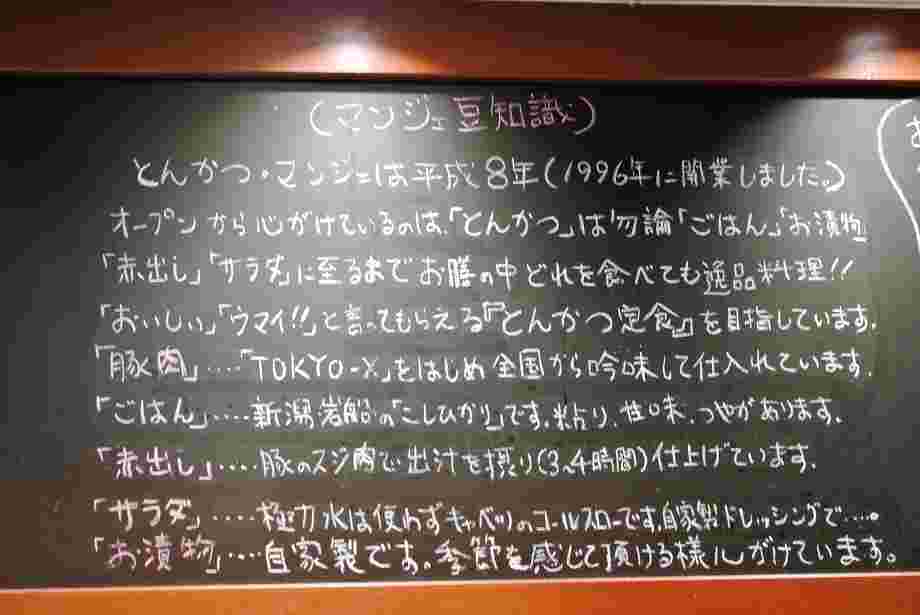 (マンジェ豆知識)
とんかつ・マンジェは平成8年(1996年に開業しました。)
オープンから心がけているのは、「とんかつ」は勿論「ごはん」、「お漬物」
「赤出し」「サラダ」に至るまでお膳の中どれを食べても逸品料理!!
「おいしい」「ウマイ!!」と言ってもらえる『とんかつ定食』を目指しています。
「豚肉」‥‥「TOKYO-X」をはじめ全国から吟味して仕入れています。
「ごはん」‥‥新潟岩船の「こしひかり」です。粘り、性味、つやがあります。
「赤出し」‥‥豚のスジ肉で出汁を摂り(3、4時間)仕上げています。
「サラダ」‥‥極力水は使わずキャベツのコールスローです。自家製ドレッシングで‥‥。
「お漬物」‥‥自家製です。季節を感じて頂ける様心がけています。